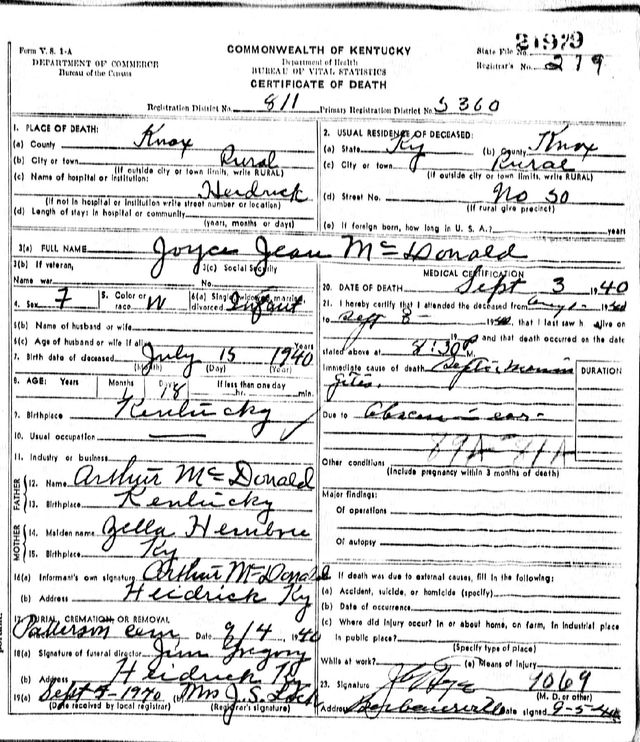 Form V. S. 1-A
DEPARTMENT OF COMMERCE
Bureau of the Census
COMMONWEALTH OF KENTUCKY
Department of Health
BUREAU OF VITAL STATISTICS
CERTIFICATE OF DEATH
State File No. 21979
Registrar's No. 279
Registration District No. 811 Primary Registration District No. 5360
1. PLACE OF DEATH:
(a) County Knox
(b) City or town Rural
(If outside city or town limits, write RURAL)
(c) Name of hospital or institution:
Heidrick
(If not in hospital or institution write street number or location)
(d) Length of stay: In hospital or community
(years, months or days)
2. USUAL RESIDENCE OF DECEASED:
(a) State Ky (b) County Knox
(c) City or town Rural
(If outside city or town limits, write RURAL)
(d) Street No. No 50
(If rural give precinct)
(e) If foreign born, how long in U. S. A.? years
3(a) FULL NAME Joyce Jean McDonald
3(b) If veteran, 3(c) Social Security
Name war No.
4. Sex F 5. Color or race W 6(a) Single, widowed, married, divorced Infant
6(b) Name of husband or wife
6(c) Age of husband or wife if alive Years
7. Birth date of deceased July 15 1940
(Month) (Day) (Year)
8. AGE: Years Months Days 18 If less than one day
hr. min.
9. Birthplace Kentucky
10. Usual occupation
11. Industry or business
FATHER
12. Name Arthur McDonald
13. Birthplace Kentucky
MOTHER
14. Maiden name Zella Hembree
15. Birthplace Ky
16(a) Informant's own signature Arthur McDonald
(b) Address Heidrick Ky
17. BURIAL, CREMATION OR REMOVAL
Patterson Cem Date 9/4 1940
18(a) Signature of funeral director Jim Gregory
(b) Address Heidrick Ky
19(a) Sept 5-1940 (b) Mrs J. S.
(Date received by local registrar) (Registrar's signature)
MEDICAL CERTIFICATION
20. DATE OF DEATH Sept 3 1940
21. I hereby certify that I attended the deceased from
to Sept 1940, that I last saw h alive on
19 and that death occurred on the date
stated above at 8:30 P
Immediate cause of death Septic Menin
gites. DURATION
Due to abscess in ear
Other conditions
(Include pregnancy within 3 months of death)
Major findings:
Of operations
Of autopsy
22. If death was due to external causes, fill in the following:
(a) Accident, suicide, or homicide (specify)
(b) Date of occurrence
(c) Where did injury occur? In or about home, on farm, in industrial place
in public place?
(Specify type of place)
While at work? (e) Means of injury
23. Signature 9069
(M. D. or other)
Address Barbourville Date signed 9-5-40